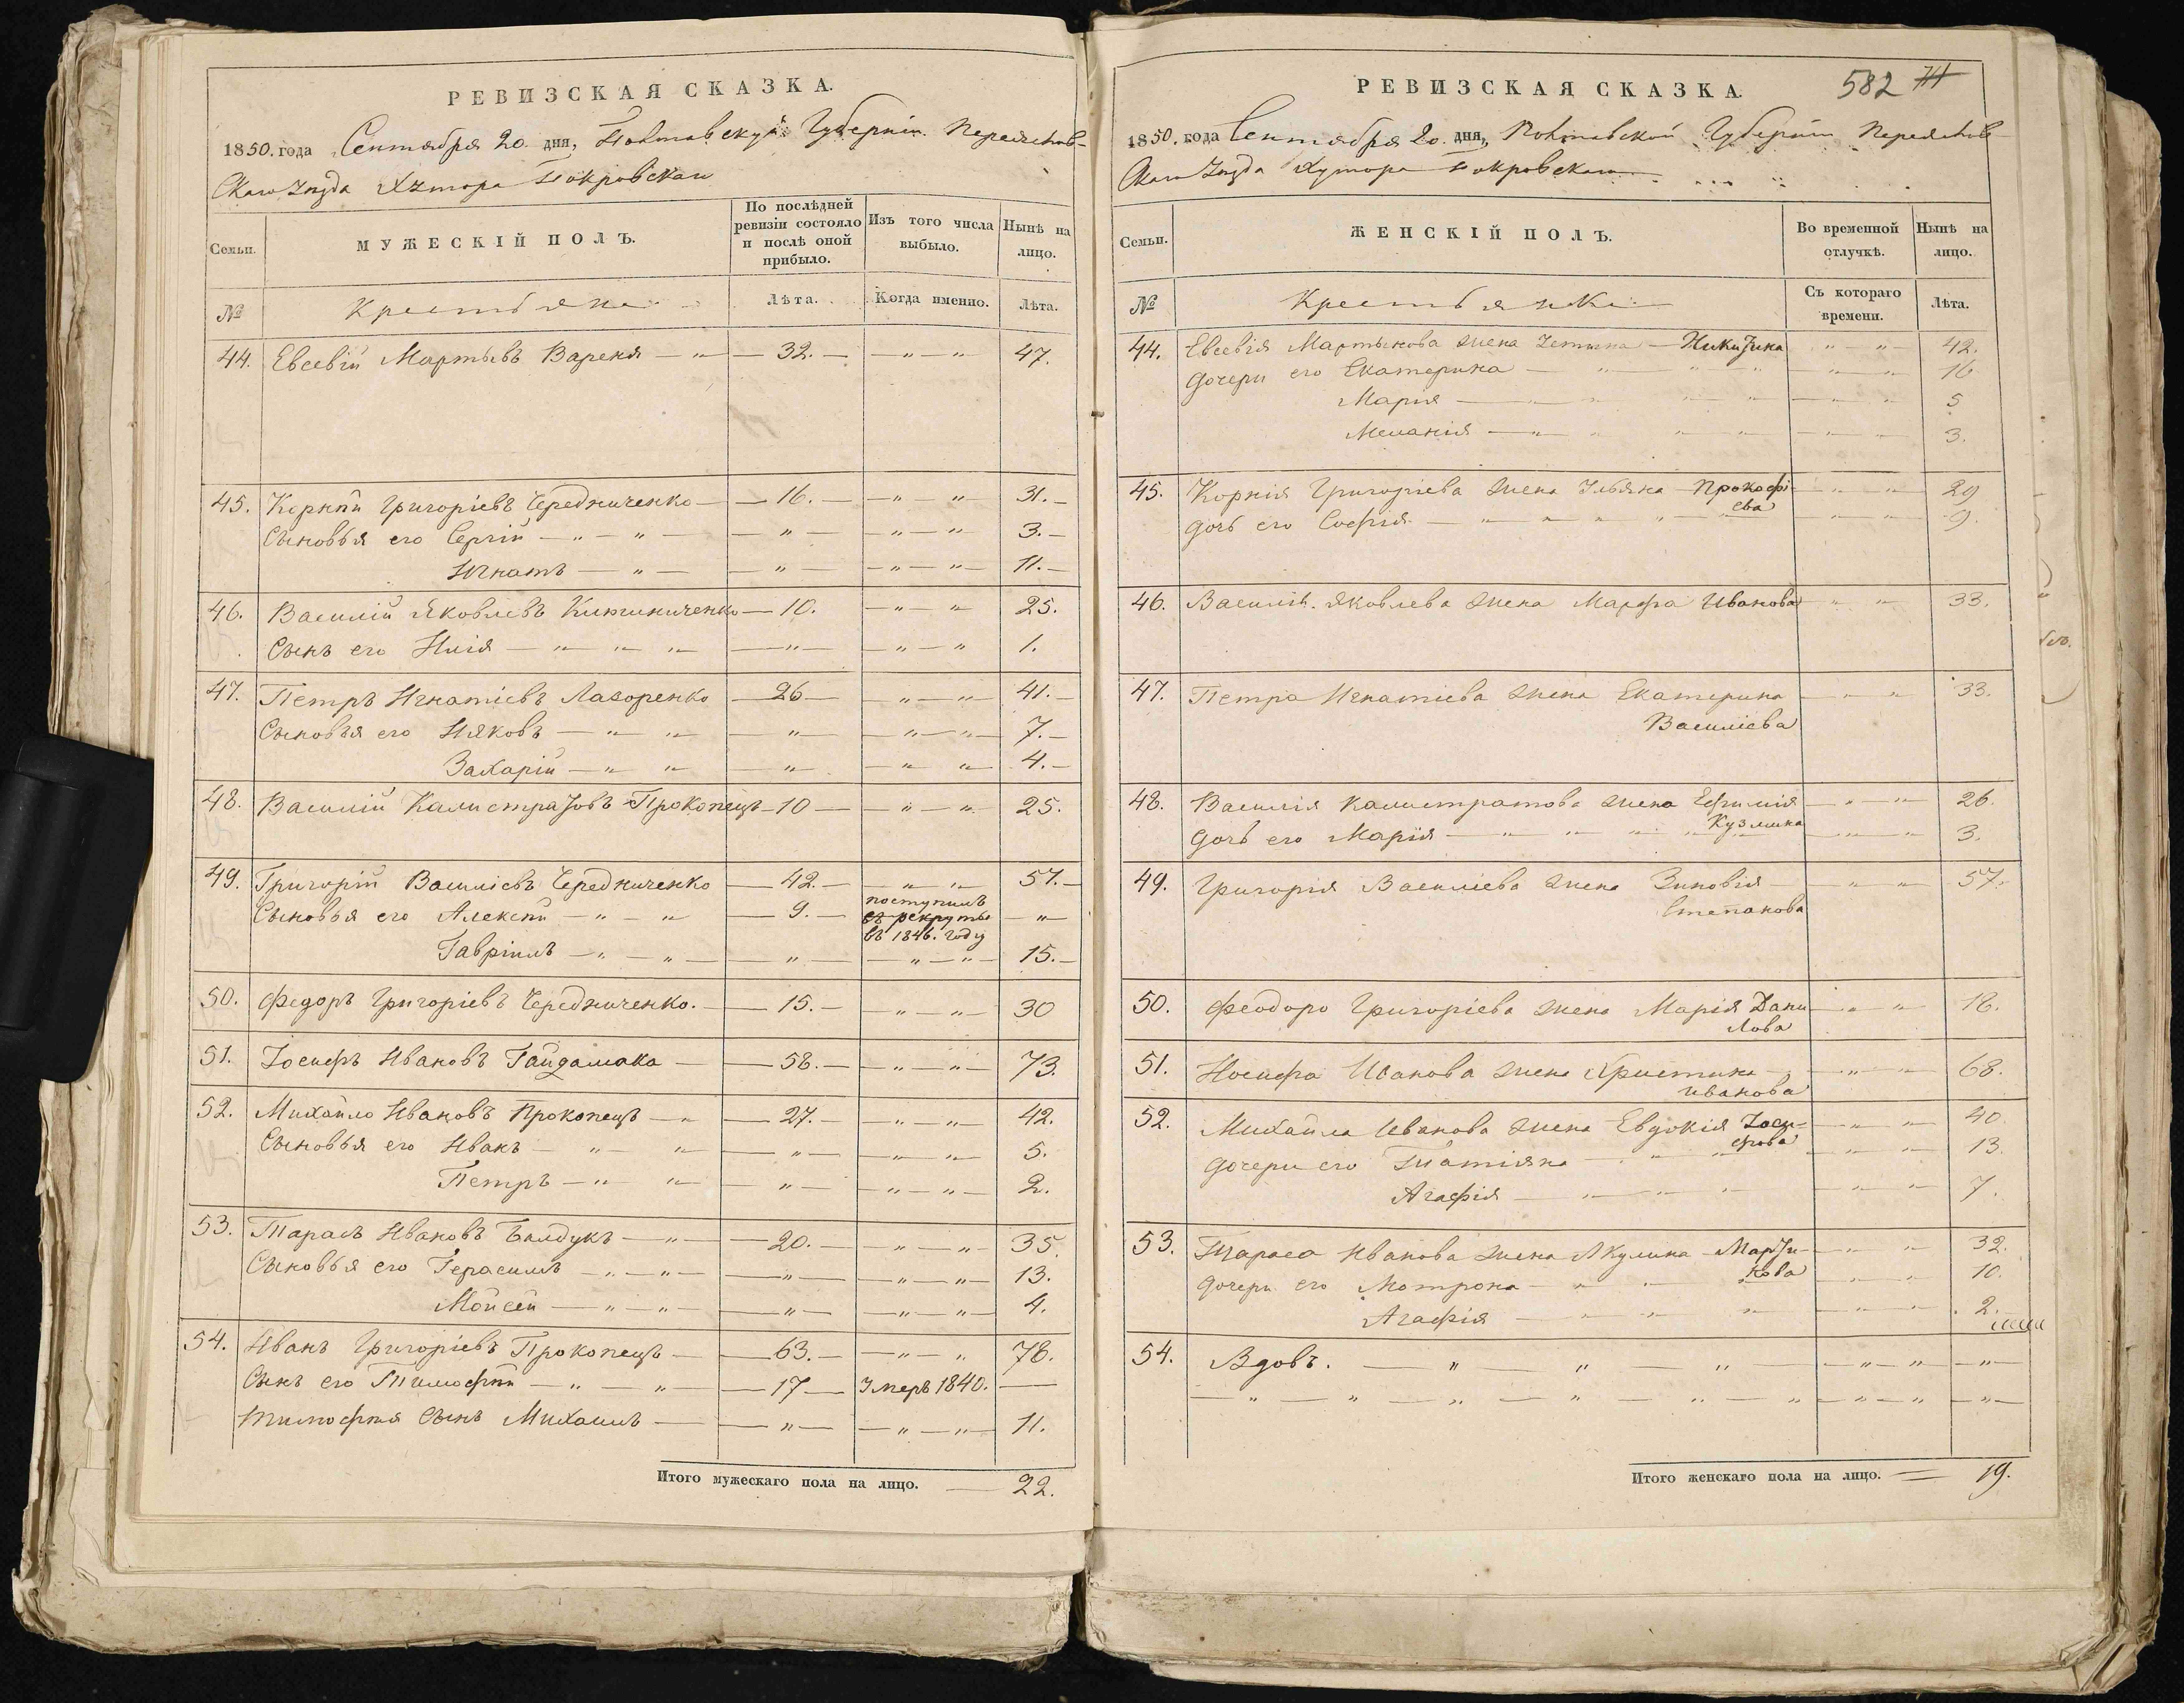 РЕВИЗСКАЯ СКАЗКА.
1850. года Сентября 20. дня, Полтавскуй Губернiи Переяслов-
скаго Уезда Хутора Покровскаго
Семьи.
МУЖЕСКIЙ ПОЛЪ.
По послѣдней ревизiи состояло и послѣ оной прибыло.
Изъ того числа выбыло.
Нынѣ на лицо.
№
Крестьяне
Лѣта.
Когда именно.
Лѣта.
44. Евсевiй Мартыновъ Вареня — " — 32. — — " " 47.
45. Корнiй Григорiевъ Чередниченко — 16. — — " " 31. —
Сыновья его Сергiй — " — " — — " — — " — " 3. —
Игнатъ — " — — " — — " — " 11. —
46. Василiй Яковлевъ — 10. — " " 25.
Сынъ его Илiя — " " " — " — — " — " 1.
47. Петръ Игнатiевъ Лазоренко — 26 — — " — " 41. —
Сыновья его Iяковъ — " " — " — " — " — 7. —
Захарiй — " " — " — " " 4. —
48. Василiй Калистратовъ Прокопецъ — 10 — — " — " 25.
49. Григорiй Василiевъ Чередниченко — 42. — — " " 57. —
Сыновья его Алексѣй — " — " — 9. — поступилъ въ рекруты въ 1846. году — " —
Гаврiилъ — " — " — — " — — " — " — 15. —
50. Федоръ Григорiевъ Чередниченко. — 15. — — " — " 30
51. Iосифъ Ивановъ Гайдамака — 58. — — " — " 73.
52. Михайло Ивановъ Прокопецъ — " — 27. — — " — " 42.
Сыновья его Иванъ — " — " — " — — " — " 5.
Петръ — " — " — " — — " — " 2.
53. Тарасъ Ивановъ Балдукъ — " — — 20. — — " — " 35.
Сыновья его Герасимъ — " — " — — " — — " — " 13.
Мойсей — " — " — — " — — " — " 4.
54. Иванъ Григорiевъ Прокопецъ — 63. — — " — " 78.
Сынъ его Тимофѣй — " — " — 17 — Умеръ 1840. —
Тимофѣя Сынъ Михаилъ — — " — — " — " 11.
Итого мужескаго пола на лицо. — 22.
РЕВИЗСКАЯ СКАЗКА.
582
1850. года Сентября 20. дня, Полтавской Губернiи Переяслов-
скаго Уезда Хутора Покровскаго
Семьи.
ЖЕНСКIЙ ПОЛЪ.
Во временной отлучкѣ.
Нынѣ на лицо.
№
Крестьянки
Съ котораго времени.
Лѣта.
44. Евсевiя Мартынова жена Устина — Никитина " — " 42.
дочери его Екатерина — " " " " — " 16
Марiя — " " " " — " — " 5
Меланiя — " " " " — " — " 3.
45. Корнiя Григорiева жена Ульяна — Прокофi- — " — " 29
ева
дочь его Софiя — " " " " — " — " 9
46. Василiя Яковлева жена Марфа Иванова " " 33.
47. Петра Игнатiева жена Екатерина — " " 33.
Василiева
48. Василiя Калистратова жена Ефимiя — " — " 26.
Кузмина
дочь его Марiя — " " " " — " — " 3.
49. Григорiя Василiева жена Зиновiя — " — " 57.
Степанова
50. Феодоро Григорiева жена Марiя Дани — " " 18.
лова
51. Iосифа Иванова жена Христина — " — " 68.
Иванова
52. Михайла Иванова жена Евдокiя Iоси- — " — " 40
фова
дочери его Татiяна — " " — " — " 13.
Агафiя — " — " — " — " — " 7.
53. Тараса Иванова жена Акулина — Марти- — " " 32.
нова
дочери его Мотрона — " " " " 10.
Агафiя — " " " — " — " 2.
54. Вдовъ. — " — " — " — — " — " — " —
— " — " — " — " — " — " — " — " — " —
Итого женскаго пола на лицо. — 19.